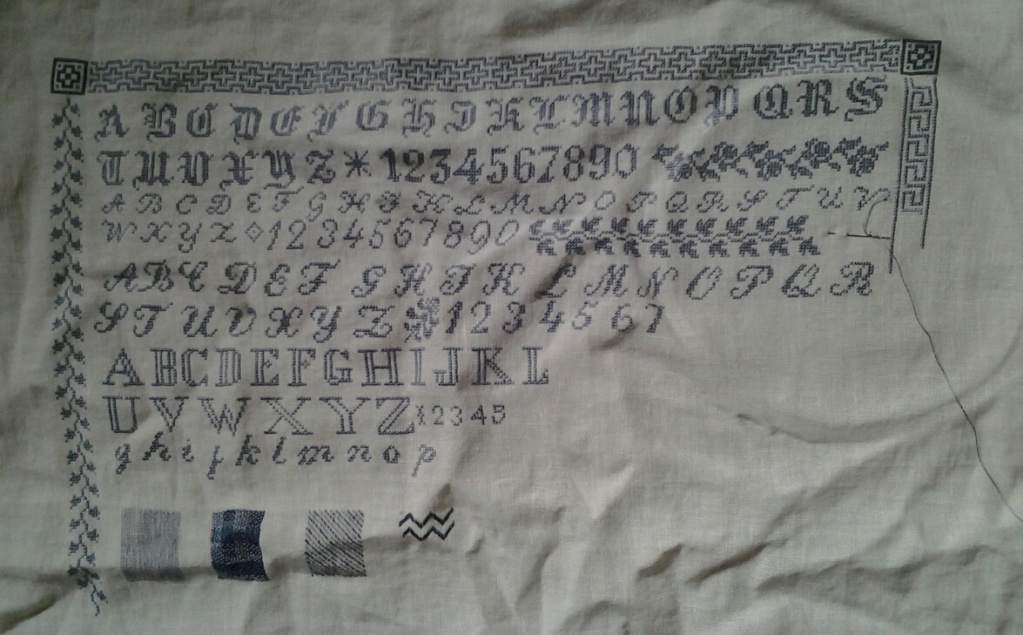 A B C D E F G H I K L M N O P Q R S
T U V X Y Z * 1234567890
A B C D E F G H I K L M N O P Q R S T U V
W X Y Z 1234567890
A B C D E F G H I K L M N O P Q R
S T U V X Y Z 1 2 3 4 5 6 7
A B C D E F G H I J K L
U V W X Y Z 1 2 3 4 5
g h i j k l m n o p